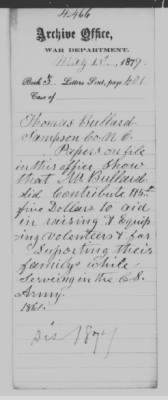 4,466
Archive Office,
WAR DEPARTMENT.
May 1879.
Book 5. Letters Sent, page 481.
Case of
Thomas Bullard
Sampson Co. N.C.
Papers on file
in this office show
that Mr Bullard
did Contribute
five Dollars to aid
in raising & Equip
ing volunteers & for
Suporting their
familys while
Serveing in the C.S.
Army.
1861.
1879